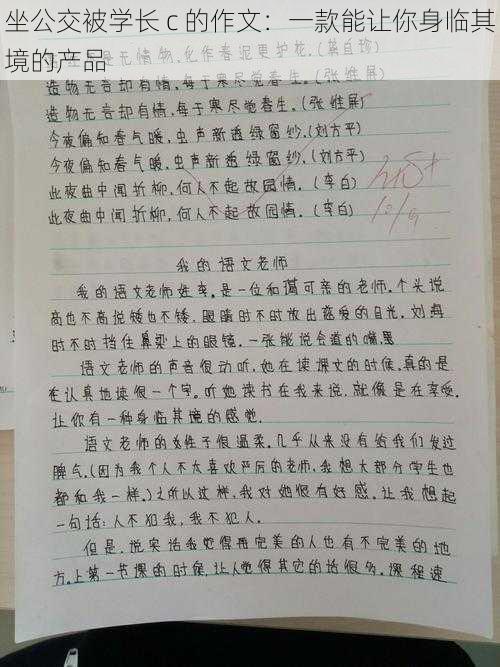 坐公交被学长 c 的作文：一款能让你身临其
境的产品
是无情物,化作春泥更护花.(龚自珍)
造物无言却有情,每于寒尽觉春生.(张维屏)
造物无言却有情,每于寒尽觉春生.(张维屏)
今夜偏知春气暖,虫声新透绿窗纱.(刘方平)
今夜偏知春气暖,虫声新透绿窗纱.(刘方平)
此夜曲中闻折柳,何人不起故园情.(李白)
此夜曲中闻折柳,何人不起故园情.(李白)
我的语文老师
我的语文老师姓李,是一位和蔼可亲的老师.个头说
高也不高说矮也不矮.眼睛时不时放出慈爱的目光.刘海
时不时挡住鼻梁上的眼镜.一张能说会道的嘴
语文老师的声音很动听,她在读课文的时候,真的是
在认真地读很一个字.听她读书在我来说,就像是在享受.
让你有一种身临其境的感觉.
语文老师的性子很温柔,几乎从来没有给我们发过
脾气.(因为我个人不太喜欢严厉的老师,我想大部分学生也
都和我一样.)之所以这样,我对她很有好感.让我想起
一句话:人不犯我,我不犯人.
但是,说实话我觉得再完美的人也有不完美的地
方.上第一节课的时候,让人觉得其它的话很多.课程速